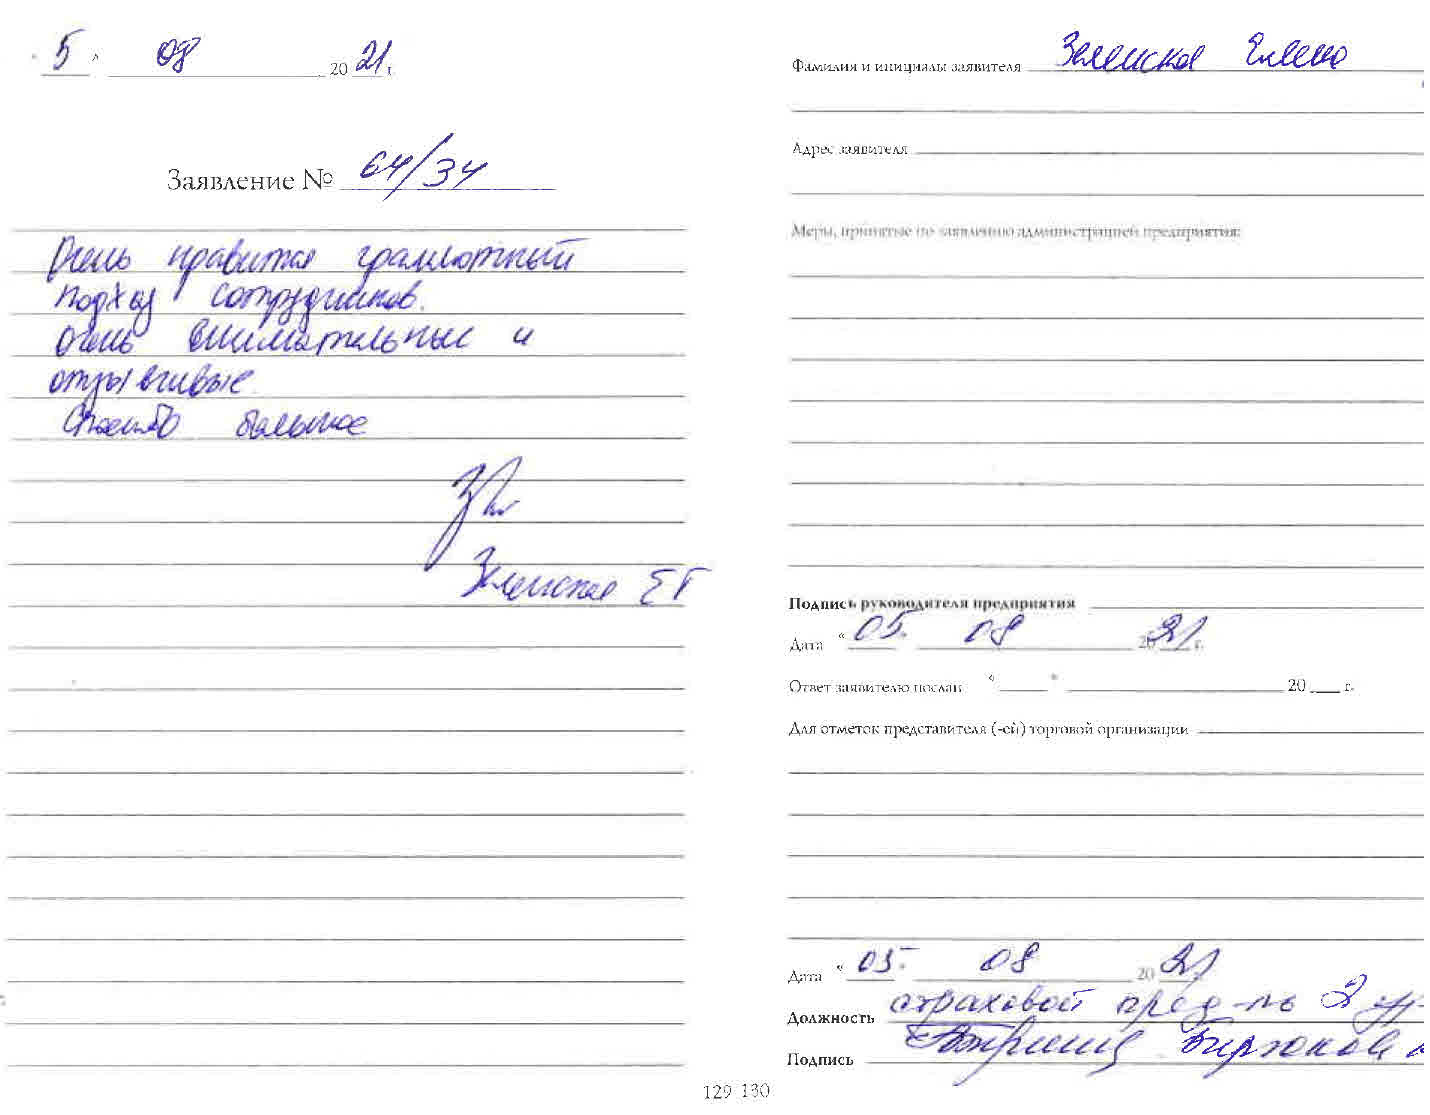 " 5 " 08 2021 г.
Заявление № 64/34
Очень нравится грамотный
подход сотрудников.
Очень внимательные и
отзывчивые.
Спасибо большое
Зеленская ЕГ
Фамилия и инициалы заявителя Зеленская Елена
Адрес заявителя
Меры, принятые по заявлению администрацией предприятия:
Подпись руководителя предприятия
Дата " 05. 08 2021 г.
Ответ заявителю послан " " 20 г.
Для отметок представителя (-ей) торговой организации
Дата " 05. 08 2021
Должность страховой пред-ль 2 ур
Подпись
129 130